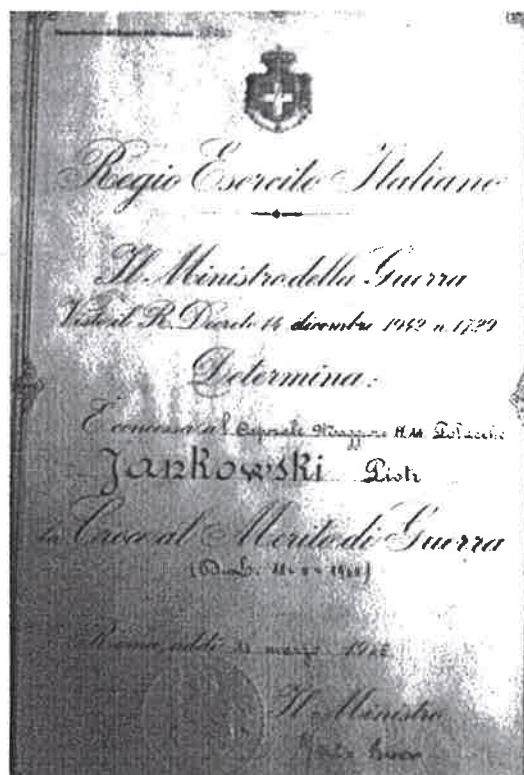 Regio Esercito Italiano
Il Ministro della Guerra
Visto il R. Decreto 14 dicembre 1942 n. 1729
Determina:
È concessa al Caporale Maggiore
Jankowski Piotr
la Croce al Merito di Guerra
Roma, addì marzo
Il Ministro